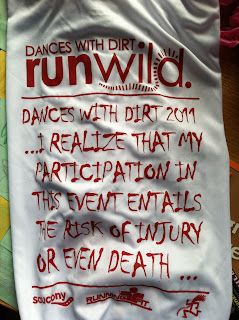 DANCES WITH DIRT
runwild.
DANCES WITH DIRT 2011
...I REALIZE THAT MY
PARTICIPATION IN
THIS EVENT ENTAILS
THE RISK OF INJURY
OR EVEN DEATH ...
saucony